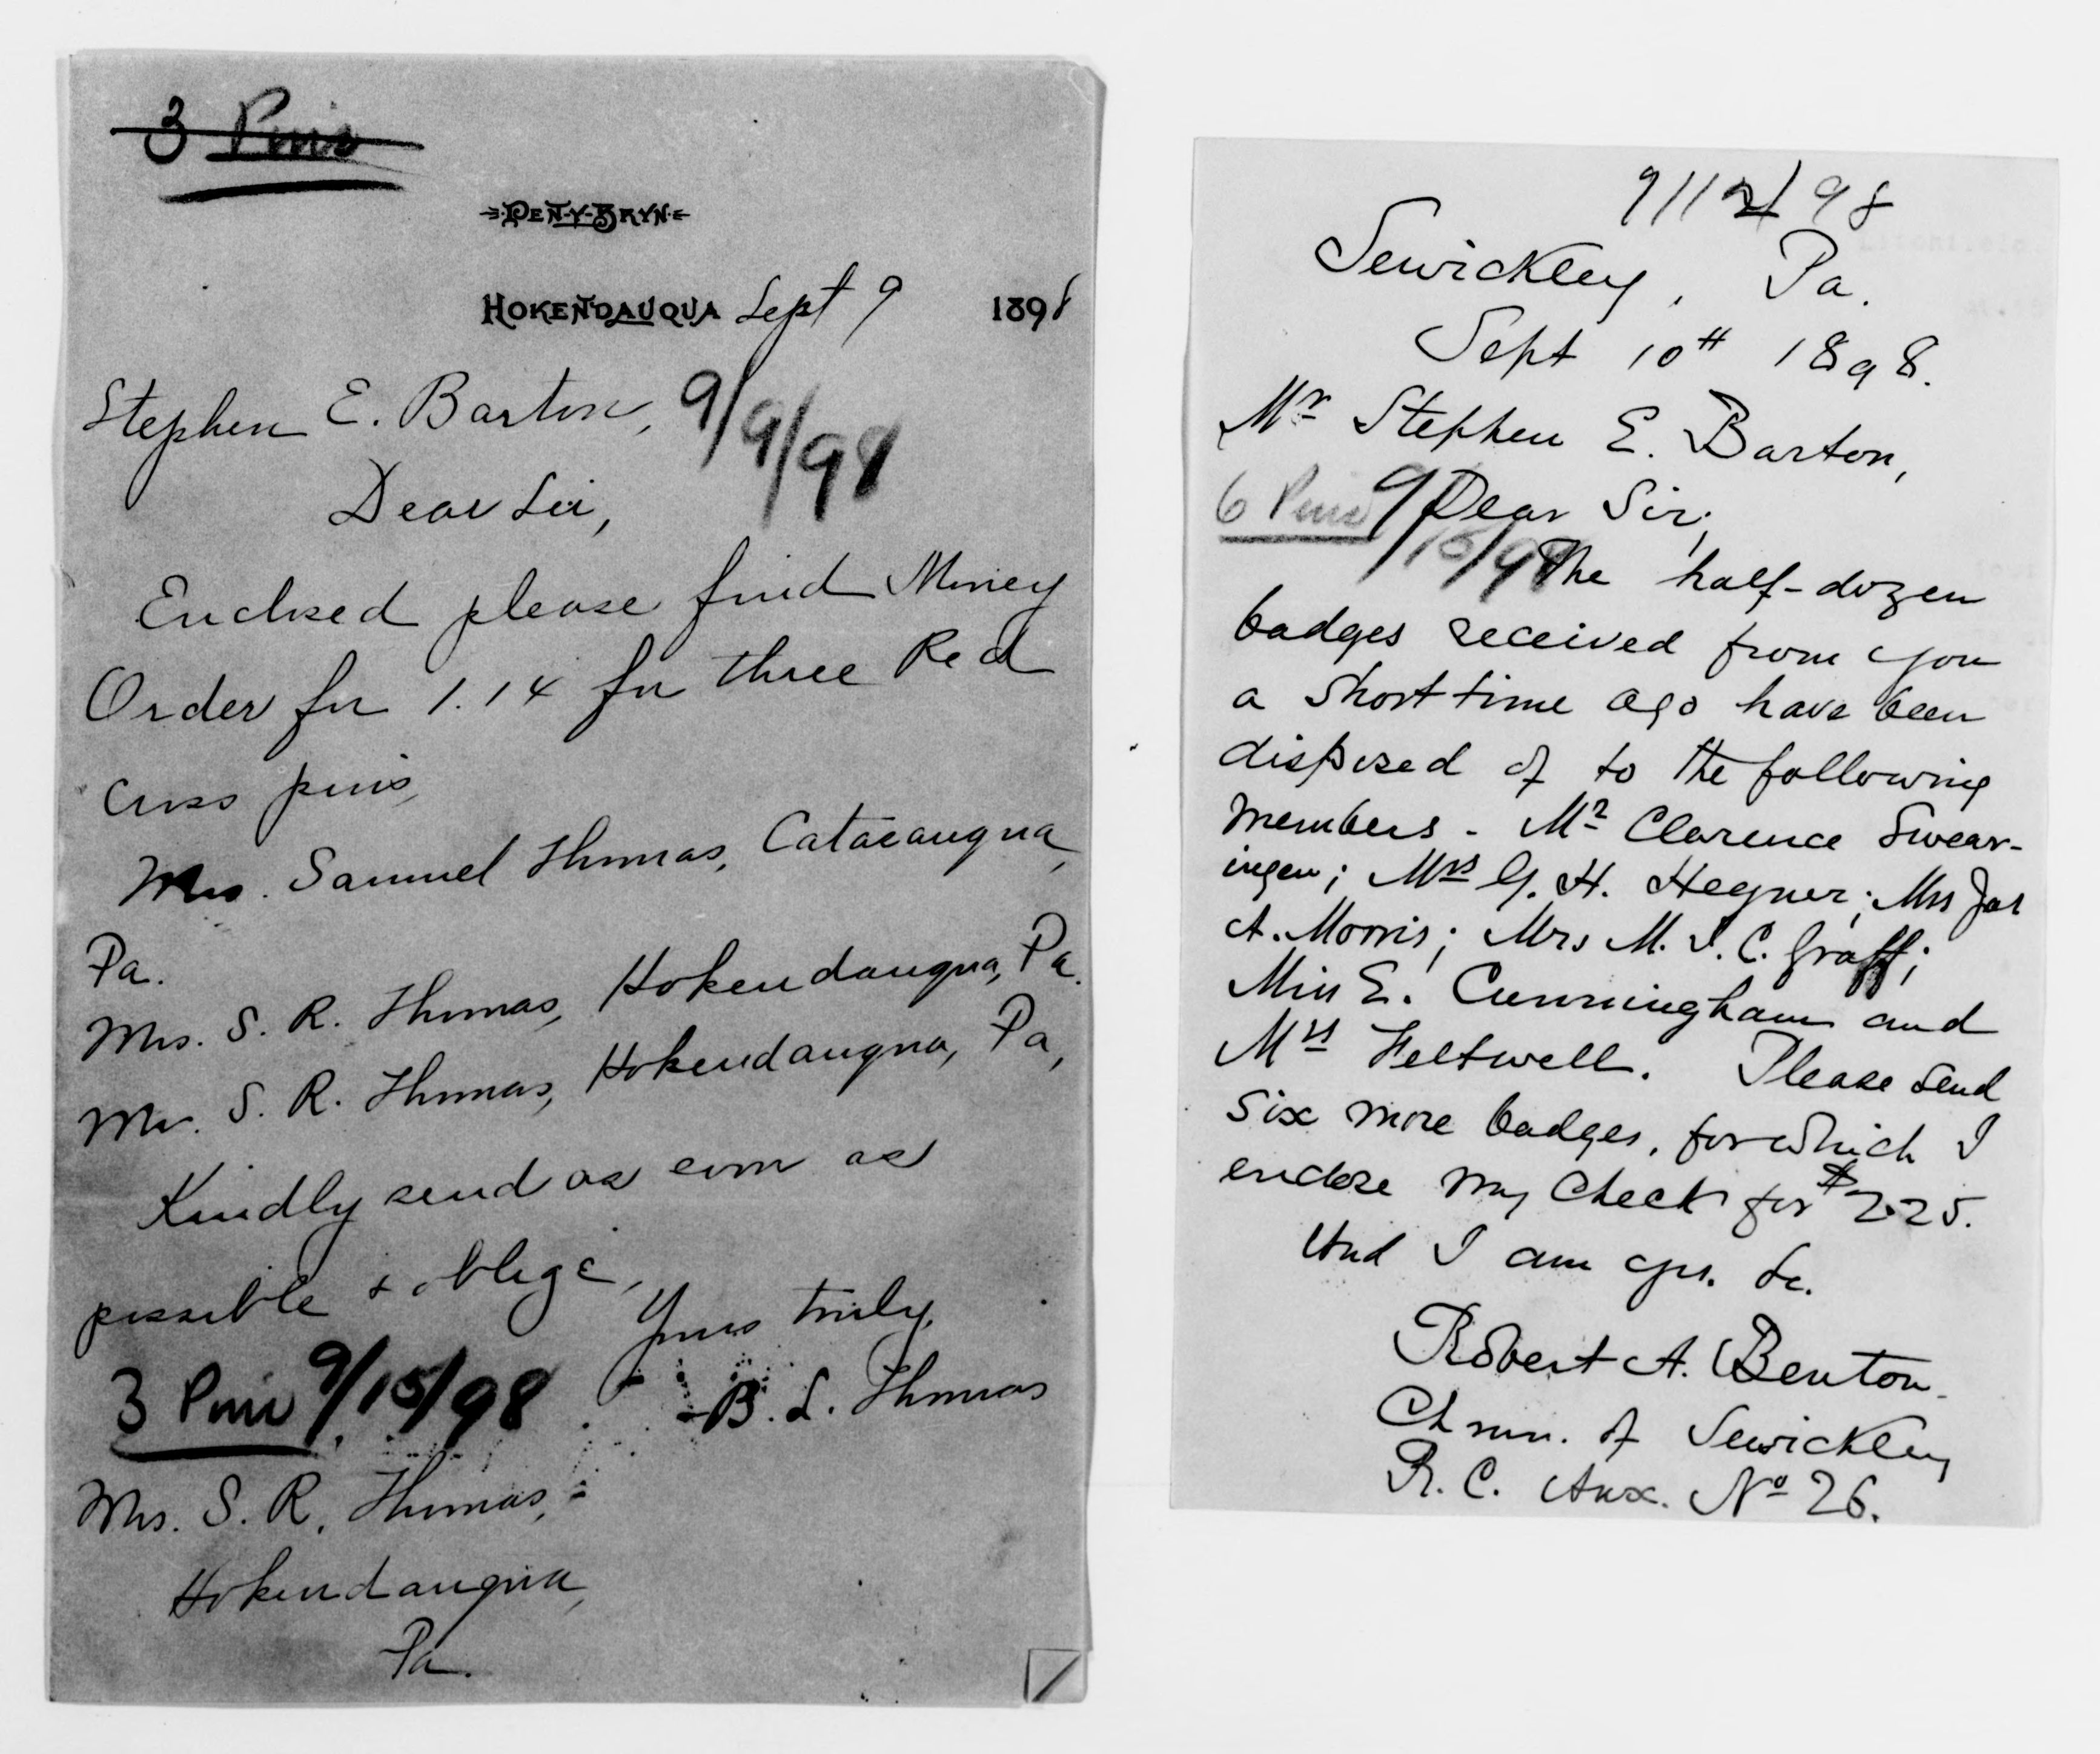 3 Pins
PEN-Y-BRYN
HOKENDAUQUA Sept 9 1898
Stephen E. Barton, 9/9/98
Dear Sir,
Enclosed please find Money
Order for 1.14 for three Red
Cross pins,
Mrs. Samuel Thomas, Catacauqua,
Pa.
Mrs. S. R. Thomas, Hokendauqua, Pa.
Mr. S. R. Thomas, Hokendauqua, Pa,
Kindly send as soon as
possible & oblige,
Yours truly,
B. L. Thomas
3 Pins 9/15/98
Mrs. S. R. Thomas,
Hokendauqua,
Pa.
9/12/98
Sewickley, Pa.
Sept 10th 1898.
Mr Stephen E. Barton,
6 Pins 9/15/98 Dear Sir;
The half-dozen
badges received from you
a short time ago have been
disposed of to the following
members - Mr Clarence Swear-
ingen; Mrs G. H. Hegner; Mrs Jas
A. Morris; Mrs M. I. C. Graff;
Miss E. Cunningham and
Mrs Feltwell. Please send
six more badges, for which I
enclose my check for $2.25.
And I am yrs. &c.
Robert A. Benton.
Chmn. of Sewickley
R. C. Aux. No 26.